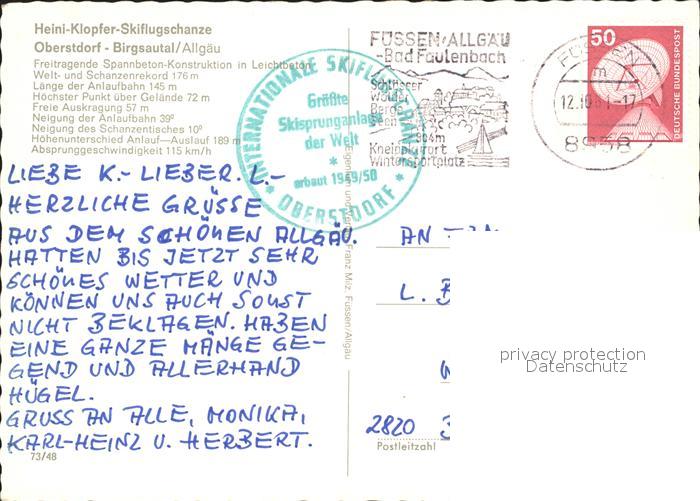 Heini-Klopfer-Skiflugschanze
Oberstdorf - Birgsautal/Allgäu
Freitragende Spannbeton-Konstruktion in Leichtbeton
Welt- und Schanzenrekord 176 m
Länge der Anlaufbahn 145 m
Höchster Punkt über Gelände 72 m
Freie Auskragung 57 m
Neigung der Anlaufbahn 39º
Neigung des Schanzentisches 10º
Höhenunterschied Anlauf—Auslauf 189 m
Absprunggeschwindigkeit 115 km/h
INTERNATIONALE SKIFLUGSCHANZE
Größte
Skisprunganlage
der Welt
*
erbaut 1949/50
* OBERSTDORF *
FÜSSEN/ALLGÄU
-Bad Faulenbach
Schlösser
Wälder
Berge
Seen
Kneippkurort
Wintersportplatz
FÜSSEN
m
12.10.81-17
8958
50
DEUTSCHE BUNDESPOST
LIEBE K.- LIEBER. L.-
HERZLICHE GRÜSSE
AUS DEM SCHÖNEN ALLGÄU
HATTEN BIS JETZT SEHR
SCHÖNES WETTER UND
KÖNNEN UNS AUCH SONST
NICHT BEKLAGEN. HABEN
EINE GANZE MÄNGE GE-
GEND UND ALLERHAND
HÜGEL.
GRUSS AN ALLE, MONIKA,
KARL-HEINZ U. HERBERT.
73/48
Franz Milz, Füssen/Allgäu
AN
L.
2820
Postleitzahl
privacy protection
Datenschutz